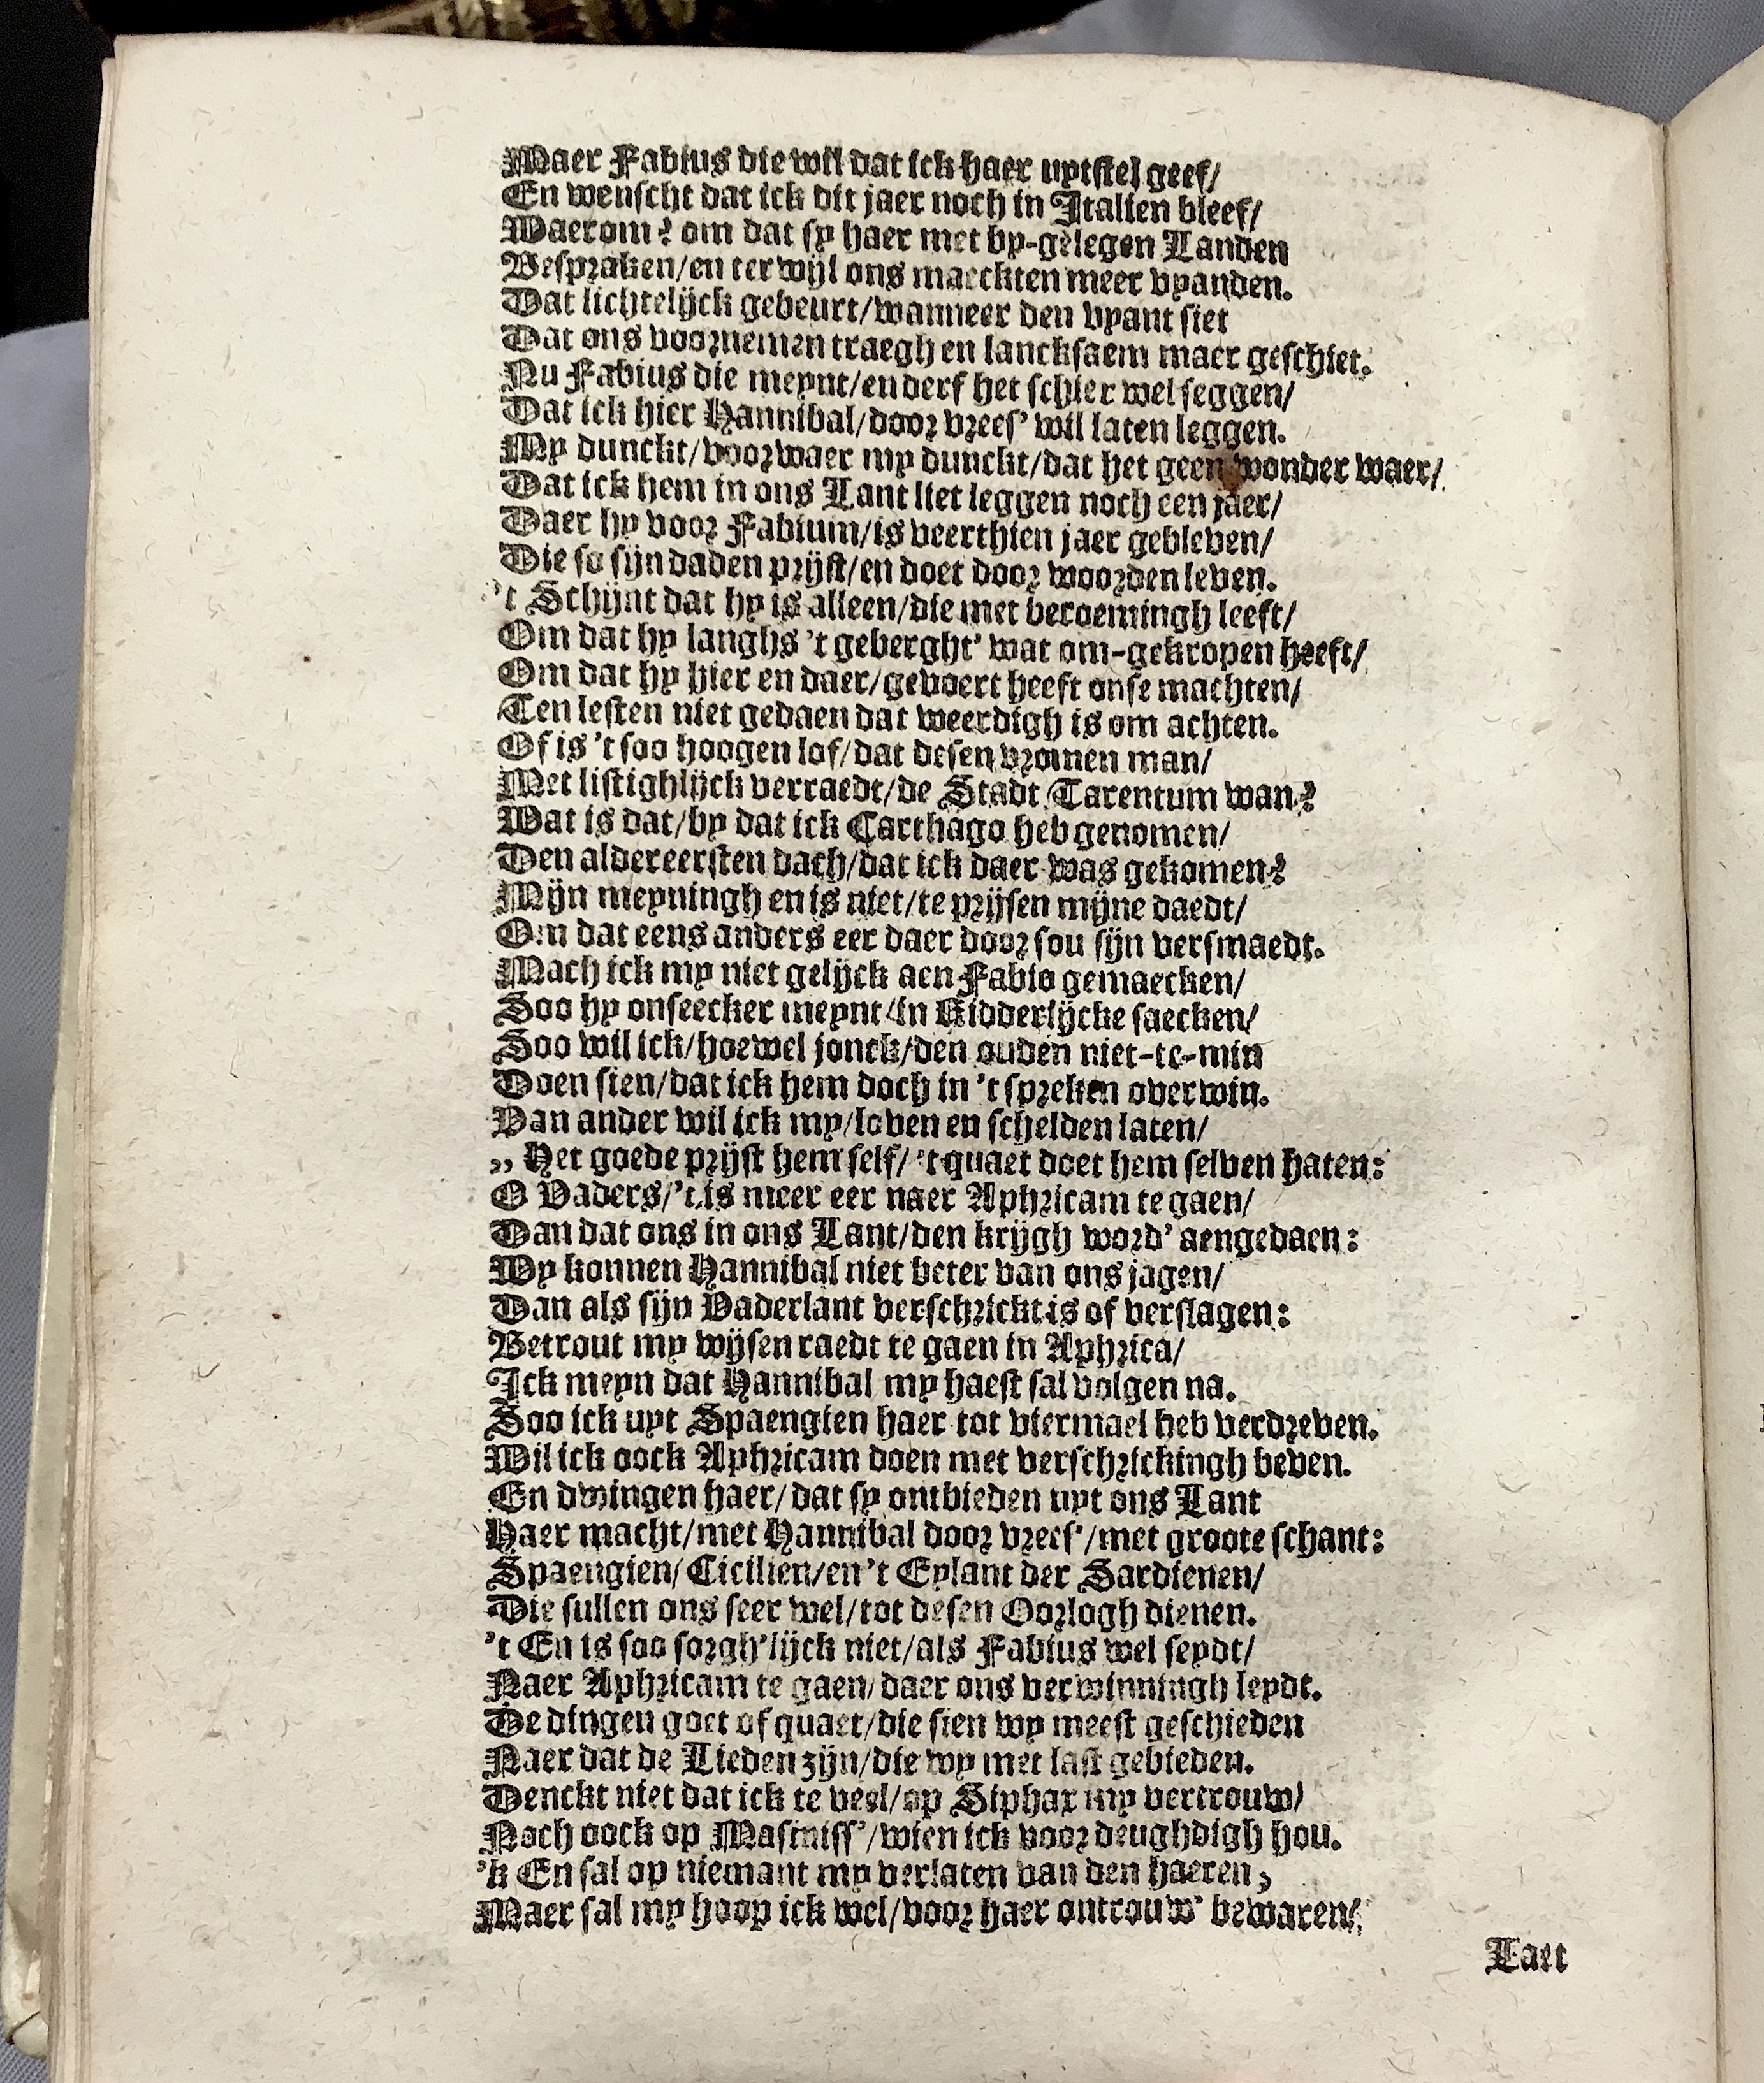 Maer Fabius die wil dat ick haer uytstel geef/
En wenscht dat ick dit jaer noch in Italien bleef/
Waerom? om dat sy haer met by-gelegen Landen
Bespraken/en terwijl ons maeckten meer vyanden.
Dat lichtelijck gebeurt/wanneer den vyant siet
Dat ons voornemen traegh en lancksaem maer geschiet.
Nu Fabius die meynt/en derf het schier wel seggen/
Dat ick hier Hannibal/door vrees' wil laten leggen.
My dunckt/voorwaer my dunckt/dat het geen wonder waer/
Dat ick hem in ons Lant liet leggen noch een jaer/
Daer hy voor Fabium/is veerthien jaer gebleven/
Die so sijn daden prijst/en doet door woorden leven.
't Schijnt dat hy is alleen/die met beroemingh leeft/
Om dat hy langhs 't geberght' wat om-gekropen heeft/
Om dat hy hier en daer/gevoert heeft onse machten/
Ten lesten niet gedaen dat weerdigh is om achten.
Of is 't soo hoogen lof/dat desen vromen man/
Met listighlijck verraedt/de Stadt Tarentum wan?
Wat is dat/by dat ick Carthago heb genomen/
Den aldereersten dach/dat ick daer was gekomen?
Mijn meyningh en is niet/te prijsen mijne daedt/
Om dat eens anders eer daer door sou sijn versmaedt.
Mach ick my niet gelijck aen Fabio gemaecken/
Soo hy onseecker meynt/in Ridderlijcke saecken/
Soo wil ick/hoewel jonck/den ouden niet-te-min
Doen sien/dat ick hem doch in 't spreken overwin.
Van ander wil ick my/loven en schelden laten/
„ Het goede prijst hem self/ 't quaet doet hem selven haten:
O Vaders/'t is meer eer naer Aphricam te gaen/
Dan dat ons in ons Lant/den krijgh word' aengedaen:
Wy konnen Hannibal niet beter van ons jagen/
Dan als sijn Vaderlant verschrickt is of verslagen:
Betrout my wijsen raedt te gaen in Aphrica/
Ick meyn dat Hannibal my haest sal volgen na.
Soo ick uyt Spaengien haer tot viermael heb verdreven.
Wil ick oock Aphricam doen met verschrickingh beven.
En dwingen haer/ dat sy ontbieden uyt ons Lant
Haer macht/met Hannibal door vrees'/met groote schant:
Spaengien/Cicilien/en't Eylant der Sardienen/
Die sullen ons seer wel/tot desen Oorlogh dienen.
't En is soo sorgh'lijck niet/als Fabius wel seydt/
Naer Aphricam te gaen/daer ons verwinningh leydt.
De dingen goet of quaet/die sien wy meest geschieden
Naer dat de Lieden zijn/die wy met last gebieden.
Denckt niet dat ick te veel/op Siphax my vertrouw/
Noch oock op Masiniss'/wien ick voor deughdigh hou.
'k En sal op niemant my verlaten van den haeren;
Maer sal my hoop ick wel/voor haer ontrouw' bewaren/
Laet